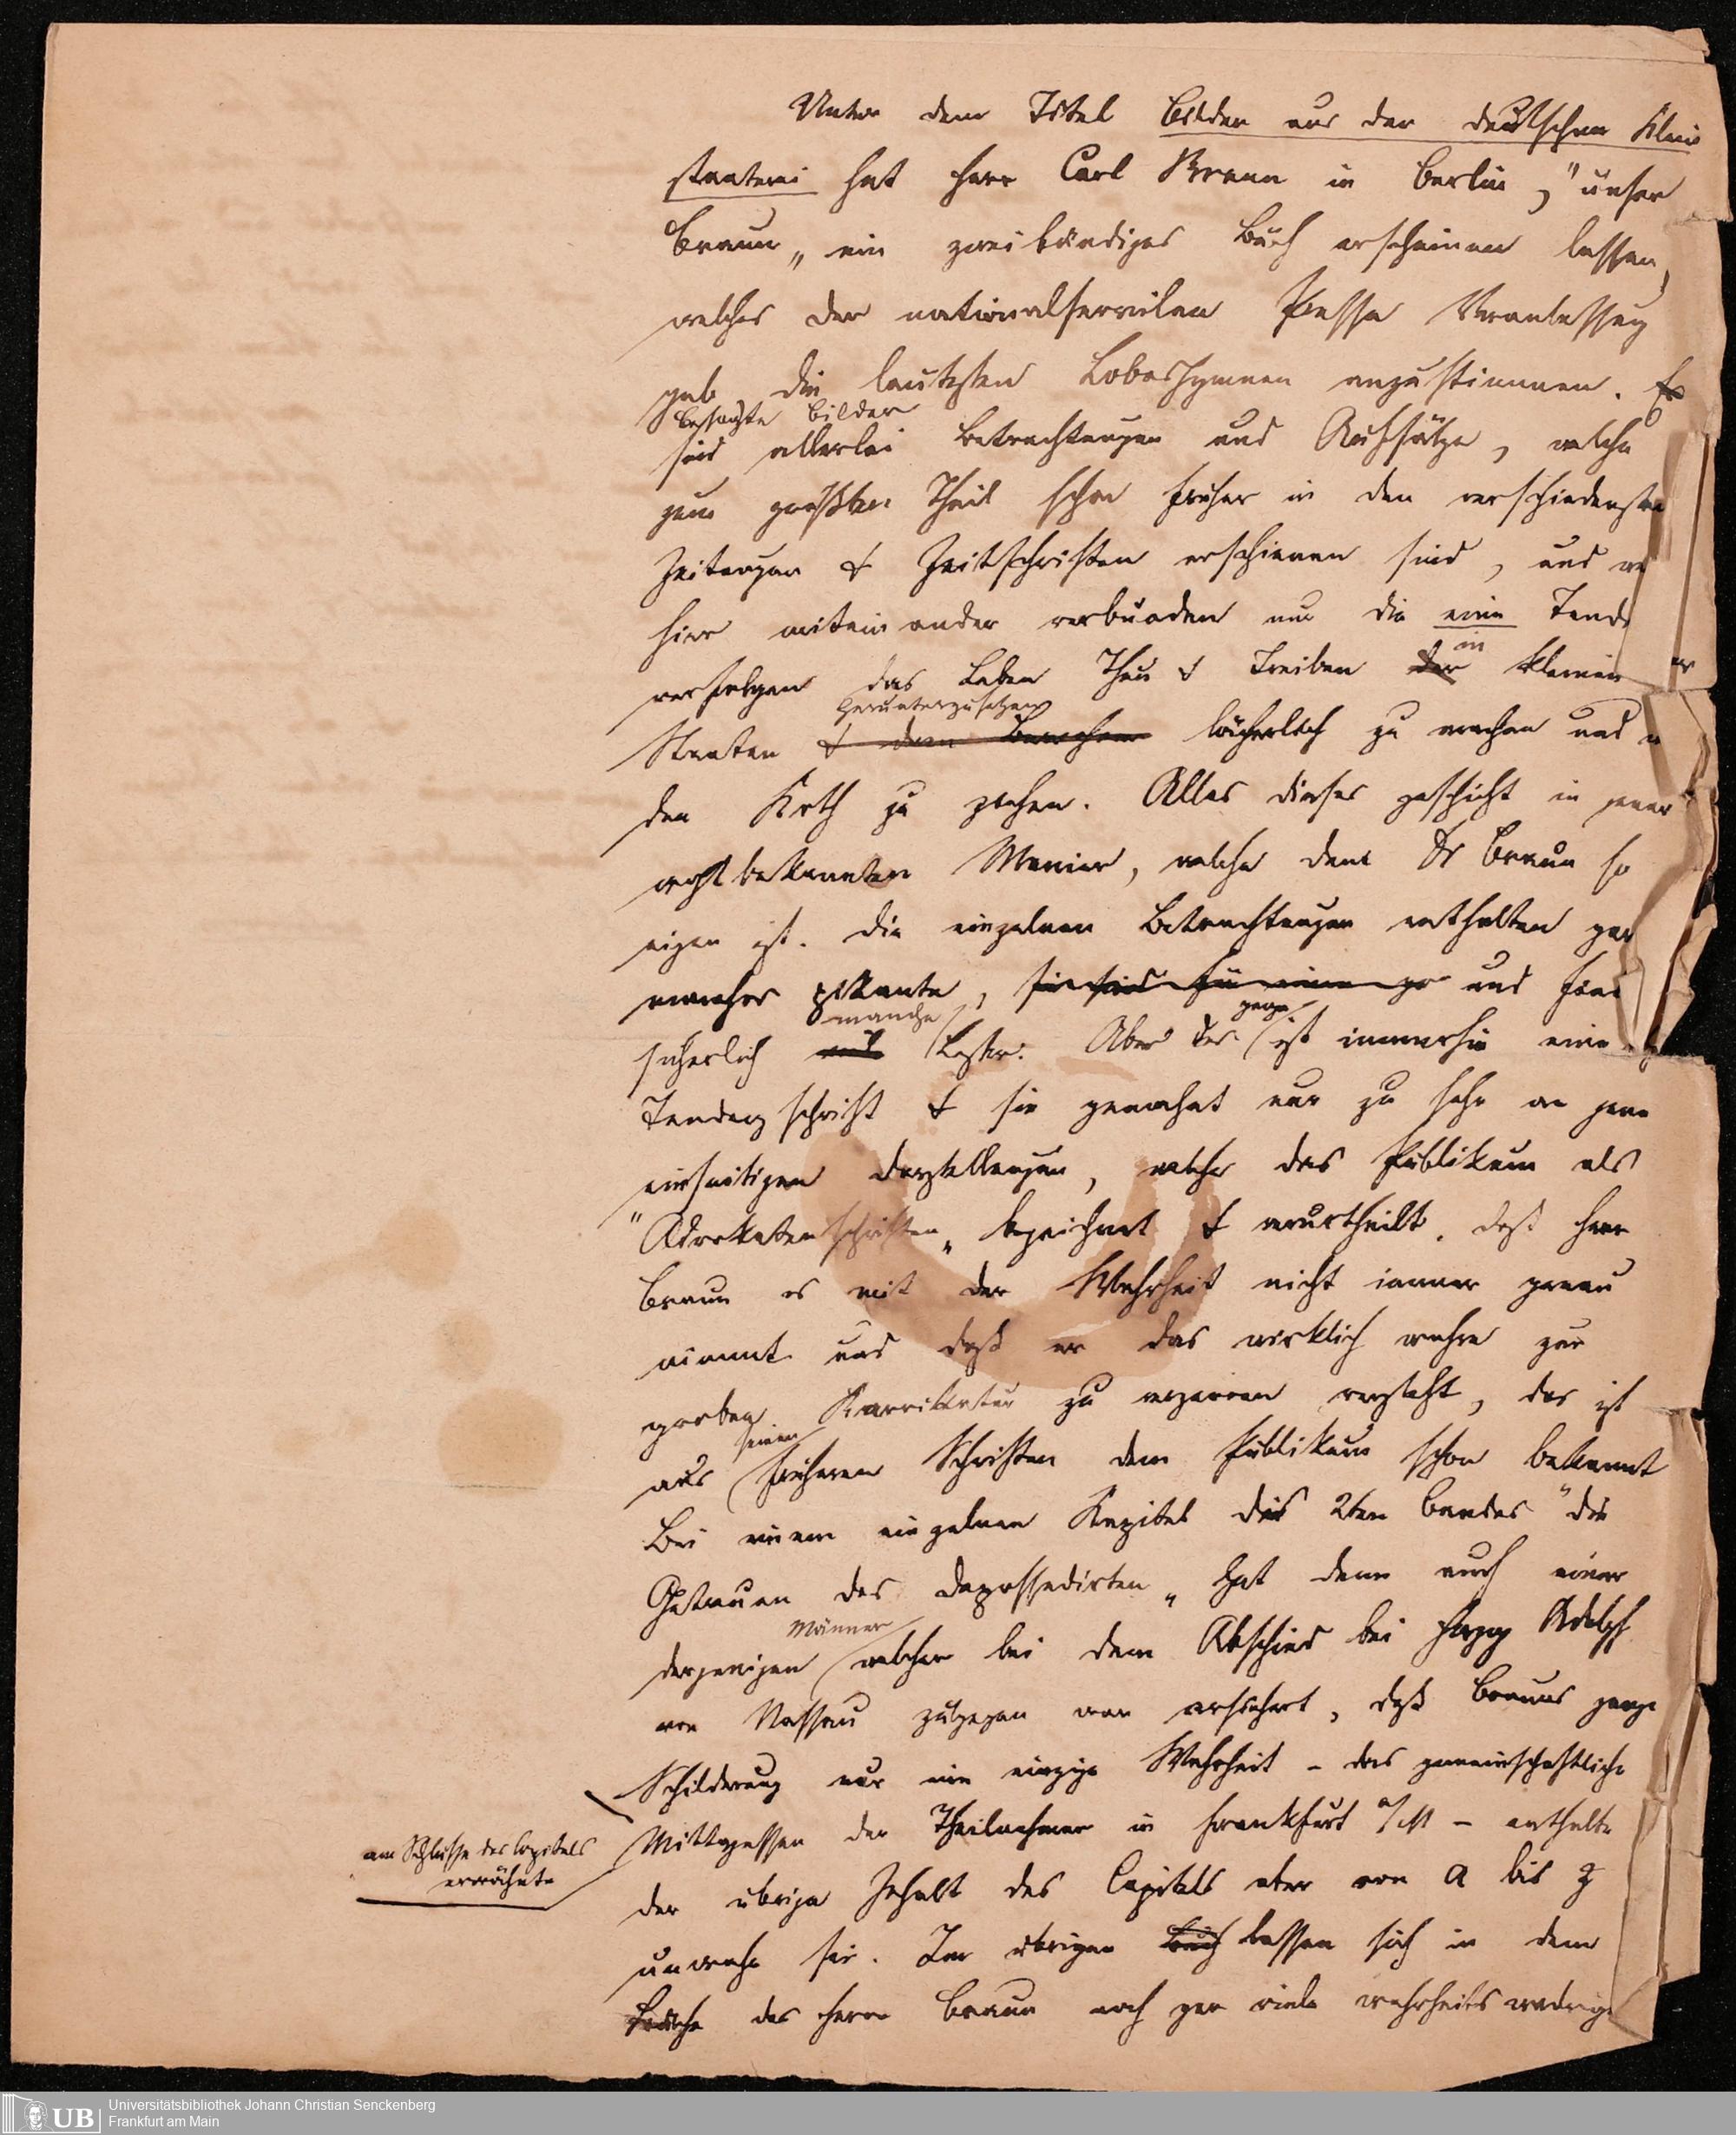 Unter dem Titel Bilder aus der deutschen Klein
staaterei hat Herr Carl Braun in Berlin, "unser
Braun„ ein zweibändiges Buch erscheinen lassen,
welches der nationalservilen Presse Veranlassung
gab die lautesten Lobeshymnen anzustimmen. Es
besagte Bilder
sind allerlei Betrachtungen und Aufsätze, welche
zum größten Theil schon früher in den verschiedensten
Zeitungen & Zeitschriften erschienen sind, und
hier miteinander verbunden nur die eine Tend
in
verfolgen das Leben Thun & Treiben der kleinen
herunterzusetzen
Staaten & dem lächerlich zu machen und
den Koth zu ziehen. Alles dieses geschieht in jener
wohlbekannten Manier, welche dem Dr Braun so
eigen ist. Die einzelnen Betrachtungen enthalten gar
manches pikante, sie sind und
manche ganze
sicherlich Leser. Aber das ist immerhin eine
Tendenzschrift & sie gemahnt nur zu sehr an jene
einseitigen Darstellungen, welche das Publikum als
"Advokatenschriften„ bezeichnet & verurtheilt. Daß Herr
Braun es mit der Wahrheit nicht immer genau
nimmt und daß er das wirklich wahre zur
groben Karrikatur zu verzerren versteht, das ist
seinen
aus früheren Schriften dem Publikum schon bekannt
Bei einem einzelnen Kapitel des 2ten Bandes "die
Getreuen des Depossedirten„ hat denn auch einer
Männer
derjenigen welcher bei dem Abschied bei Herzog Adolph
von Nassau zugegen war versichert, daß Brauns ganze
Schilderung nur eine einzige Wahrheit – das gemeinschaftliche
am Schlusse des Capitels
erwähnte
Mittagessen der Theilnehmer in Frankfurt a/M – enthalte
der übrige Inhalt des Capitels aber von A bis Z
unwahr sei. Im übrigen Buch lassen sich in dem
Buche des Herrn Braun noch gar viele wahrheitswidrige
Universitätsbibliothek Johann Christian Senckenberg
Frankfurt am Main
UB